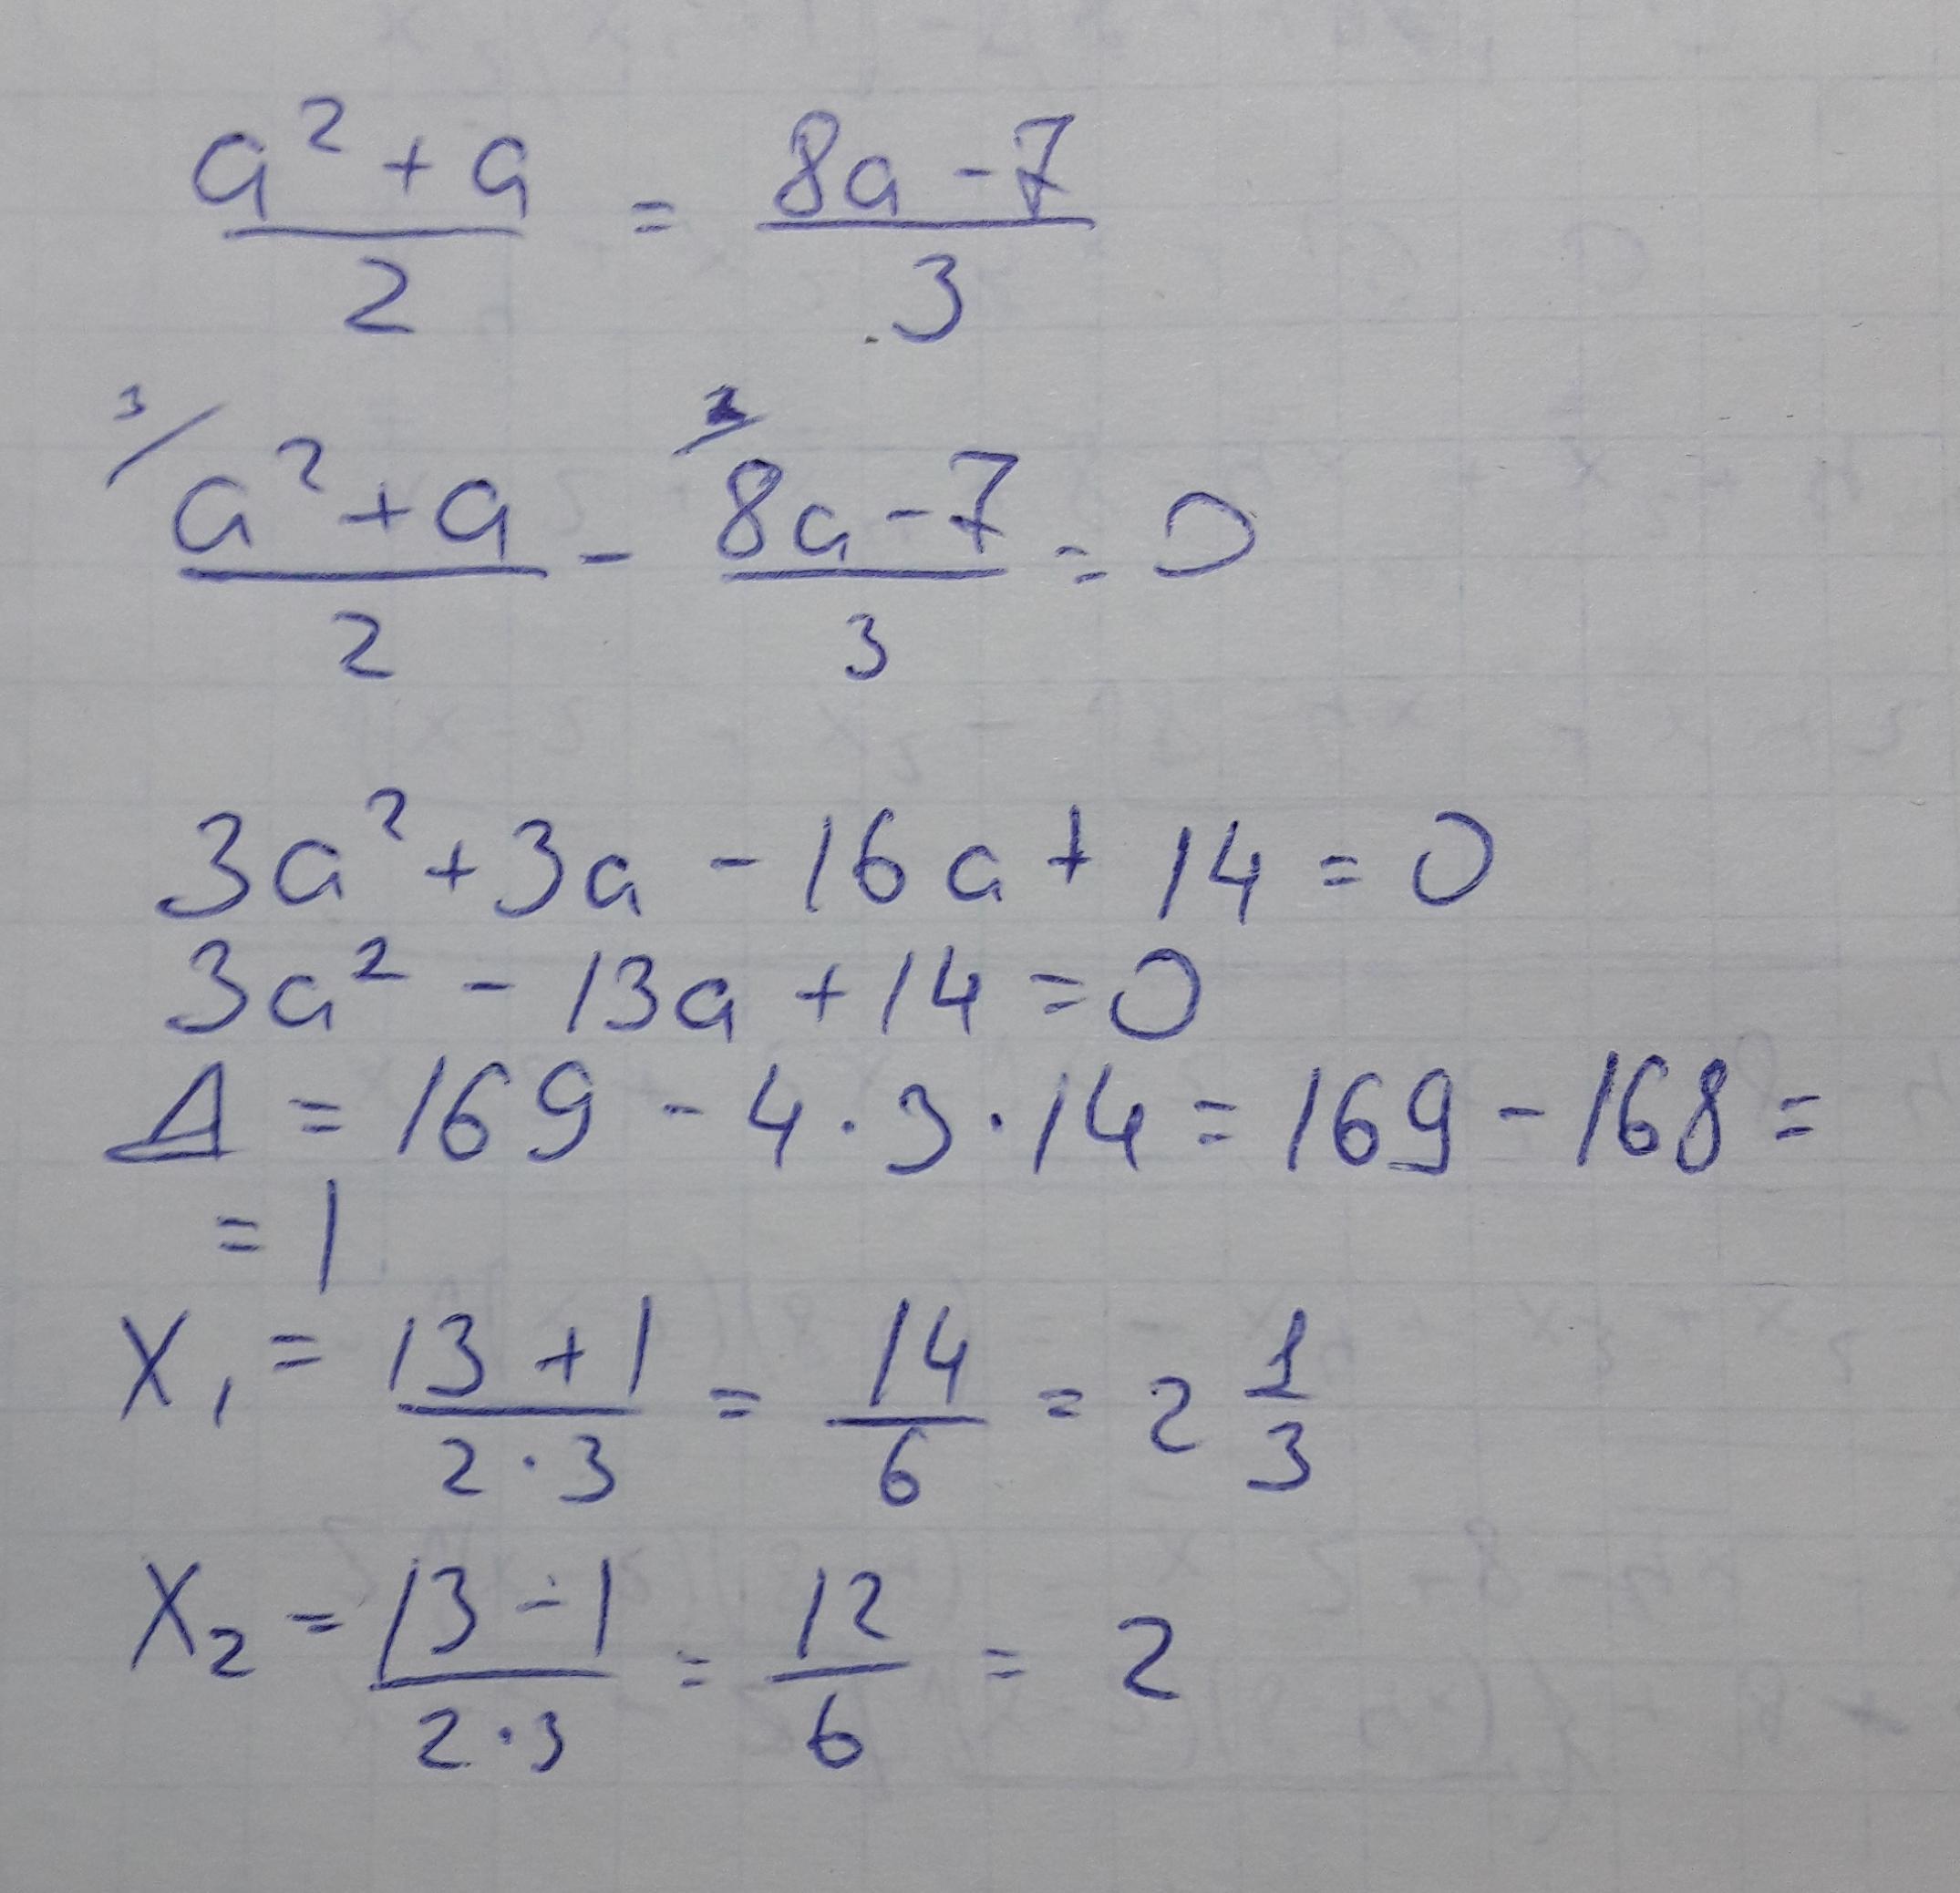 a² + a / 2 = 8a - 7 / 3
3/ a² + a / 2 - 2/ 8a - 7 / 3 = 0
3a² + 3a - 16a + 14 = 0
3a² - 13a + 14 = 0
Δ = 169 - 4 · 3 · 14 = 169 - 168 =
= 1
x₁ = 13 + 1 / 2 · 3 = 14 / 6 = 2 1/3
x₂ = 13 - 1 / 2 · 3 = 12 / 6 = 2